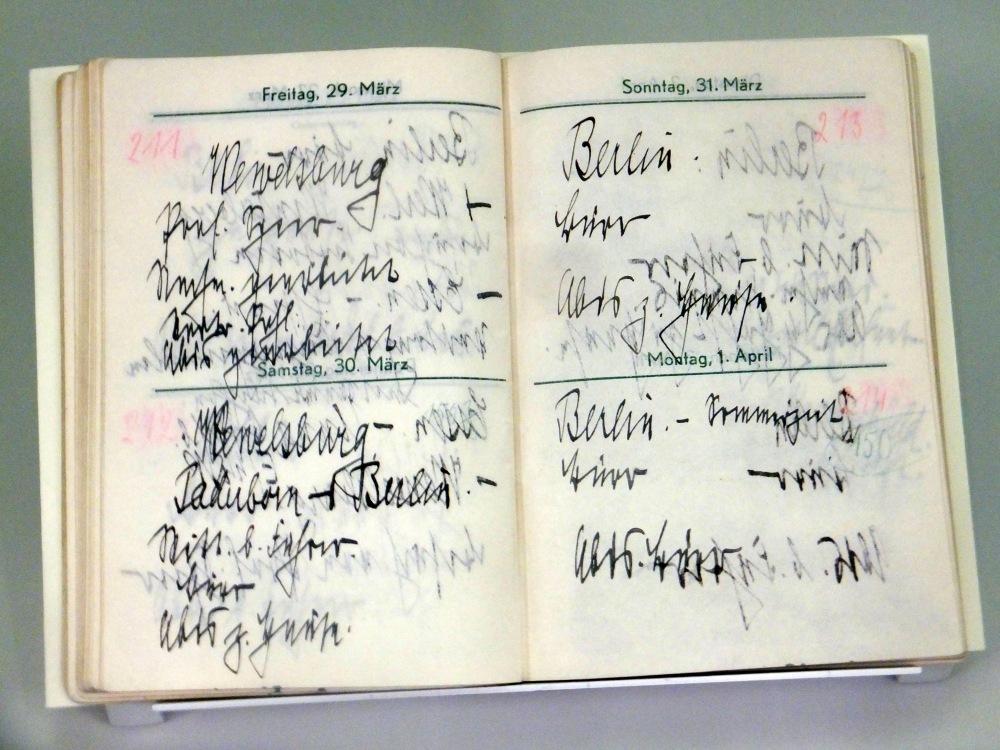 Freitag, 29. März
211
Wewelsburg
Prof.
Nachm. gearbeitet
Abds gearbeitet
Samstag, 30. März
212
Wewelsburg –
Paderborn – Berlin. –
Mitt. b. Führer.
Büro
Abds z. Hause.
Sonntag, 31. März
213
Berlin.
Büro
Abds z. Hause.
Montag, 1. April
214
Berlin. – Sommerzeit
Büro
Abds. Büro